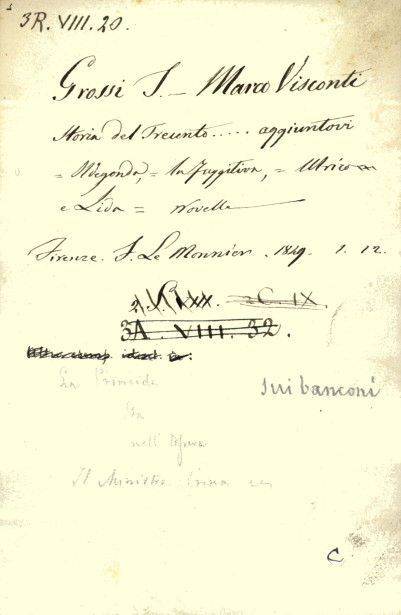 3R. VIII. 20.
Grossi T. – Marco Visconti
Storia del Trecento ..... aggiuntovi
= Ildegonda, = la Fuggitiva, = Ulrico
e Lida = novelle
Firenze. F. Le Monnier. 1849. 1. 12.
2C IX.
3A. VIII. 32.
sui banconi
nell'
Il Ministro
C